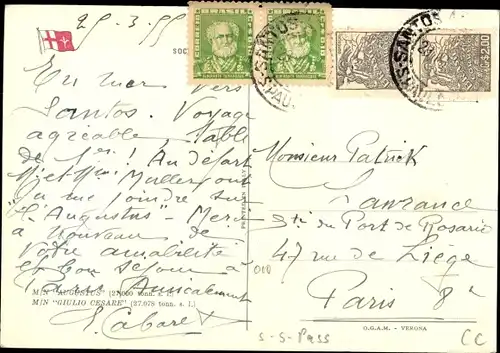 29-3-55
SOC
CORREIO
BRASIL
SANTOS
SANTOS
PAULO
2,00
En mer vers
Santos. Voyage
agréable, table
de 1er! Au départ
Mr et Mme Muller ont
pu me joindre sur
"l'Augustus" - Merci
à nouveau de
votre amabilité
et bon séjour à
Paris Amicalement
M/N "AUGUSTUS" (27.000 tonn. s. l.)
M/N "GIULIO CESARE" (27.078 tonn. s. l.)
E. Cabaret
Monsieur Patrick
Lawrance
Sté du Port de Rosario
47 rue de Liège
Paris 8e
O.G.A.M. - VERONA
S-S-Pass
CC